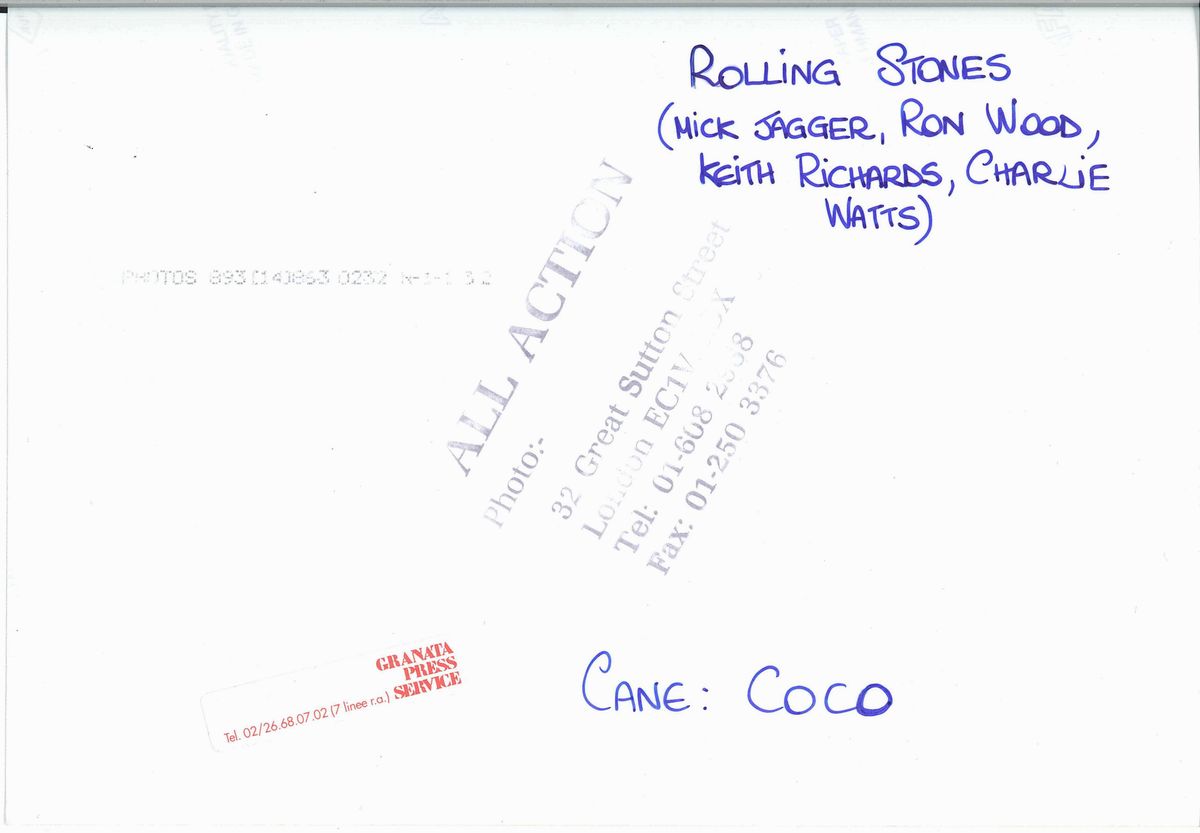 ROLLING STONES
(MICK JAGGER, RON WOOD,
KEITH RICHARDS, CHARLIE
WATTS)
PHOTOS 893(14)863 0232 N-1-1 32
ALL ACTION
Photo:-
32 Great Sutton Street
London EC1V
Tel: 01-608
Fax: 01-250 3376
GRANATA
PRESS
SERVICE
Tel. 02/26.68.07.02 (7 linee r.a.)
CANE: COCO